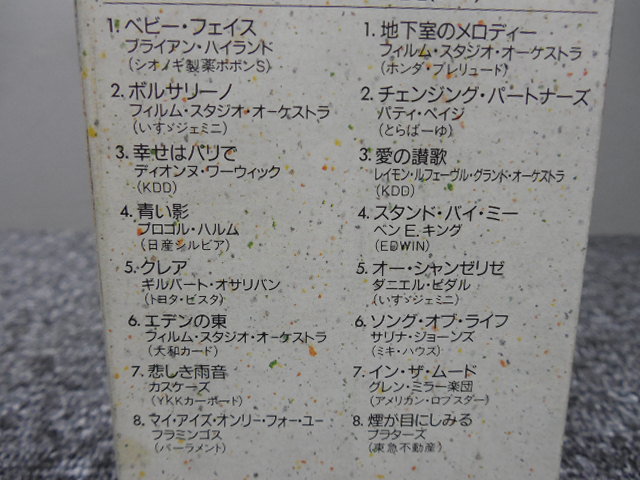 1. ベビー・フェイス
ブライアン・ハイランド
(シオノギ製薬ポポンS)
2. ボルサリーノ
フィルム・スタジオ・オーケストラ
(いすゞジェミニ)
3. 幸せはパリで
ディオンヌ・ワーウィック
(KDD)
4. 青い影
プロコル・ハルム
(日産シルビア)
5. クレア
ギルバート・オサリバン
(トヨタ・ビスタ)
6. エデンの東
フィルム・スタジオ・オーケストラ
(大和カード)
7. 悲しき雨音
カスケーズ
(YKKカーポード)
8. マイ・アイズ・オンリー・フォー・ユー
フラミンゴス
(パーラメント)
1. 地下室のメロディー
フィルム・スタジオ・オーケストラ
(ホンダ・プレリュード)
2. チェンジング・パートナーズ
パティ・ペイジ
(とらばーゆ)
3. 愛の讃歌
レイモン・ルフェーヴル・グランド・オーケストラ
(KDD)
4. スタンド・バイ・ミー
ベン E. キング
(EDWIN)
5. オー・シャンゼリゼ
ダニエル・ビダル
(いすゞジェミニ)
6. ソング・オブ・ライフ
サリナ・ジョーンズ
(ミキ・ハウス)
7. イン・ザ・ムード
グレン・ミラー楽団
(アメリカン・ロブスター)
8. 煙が目にしみる
プラターズ
(東急不動産)